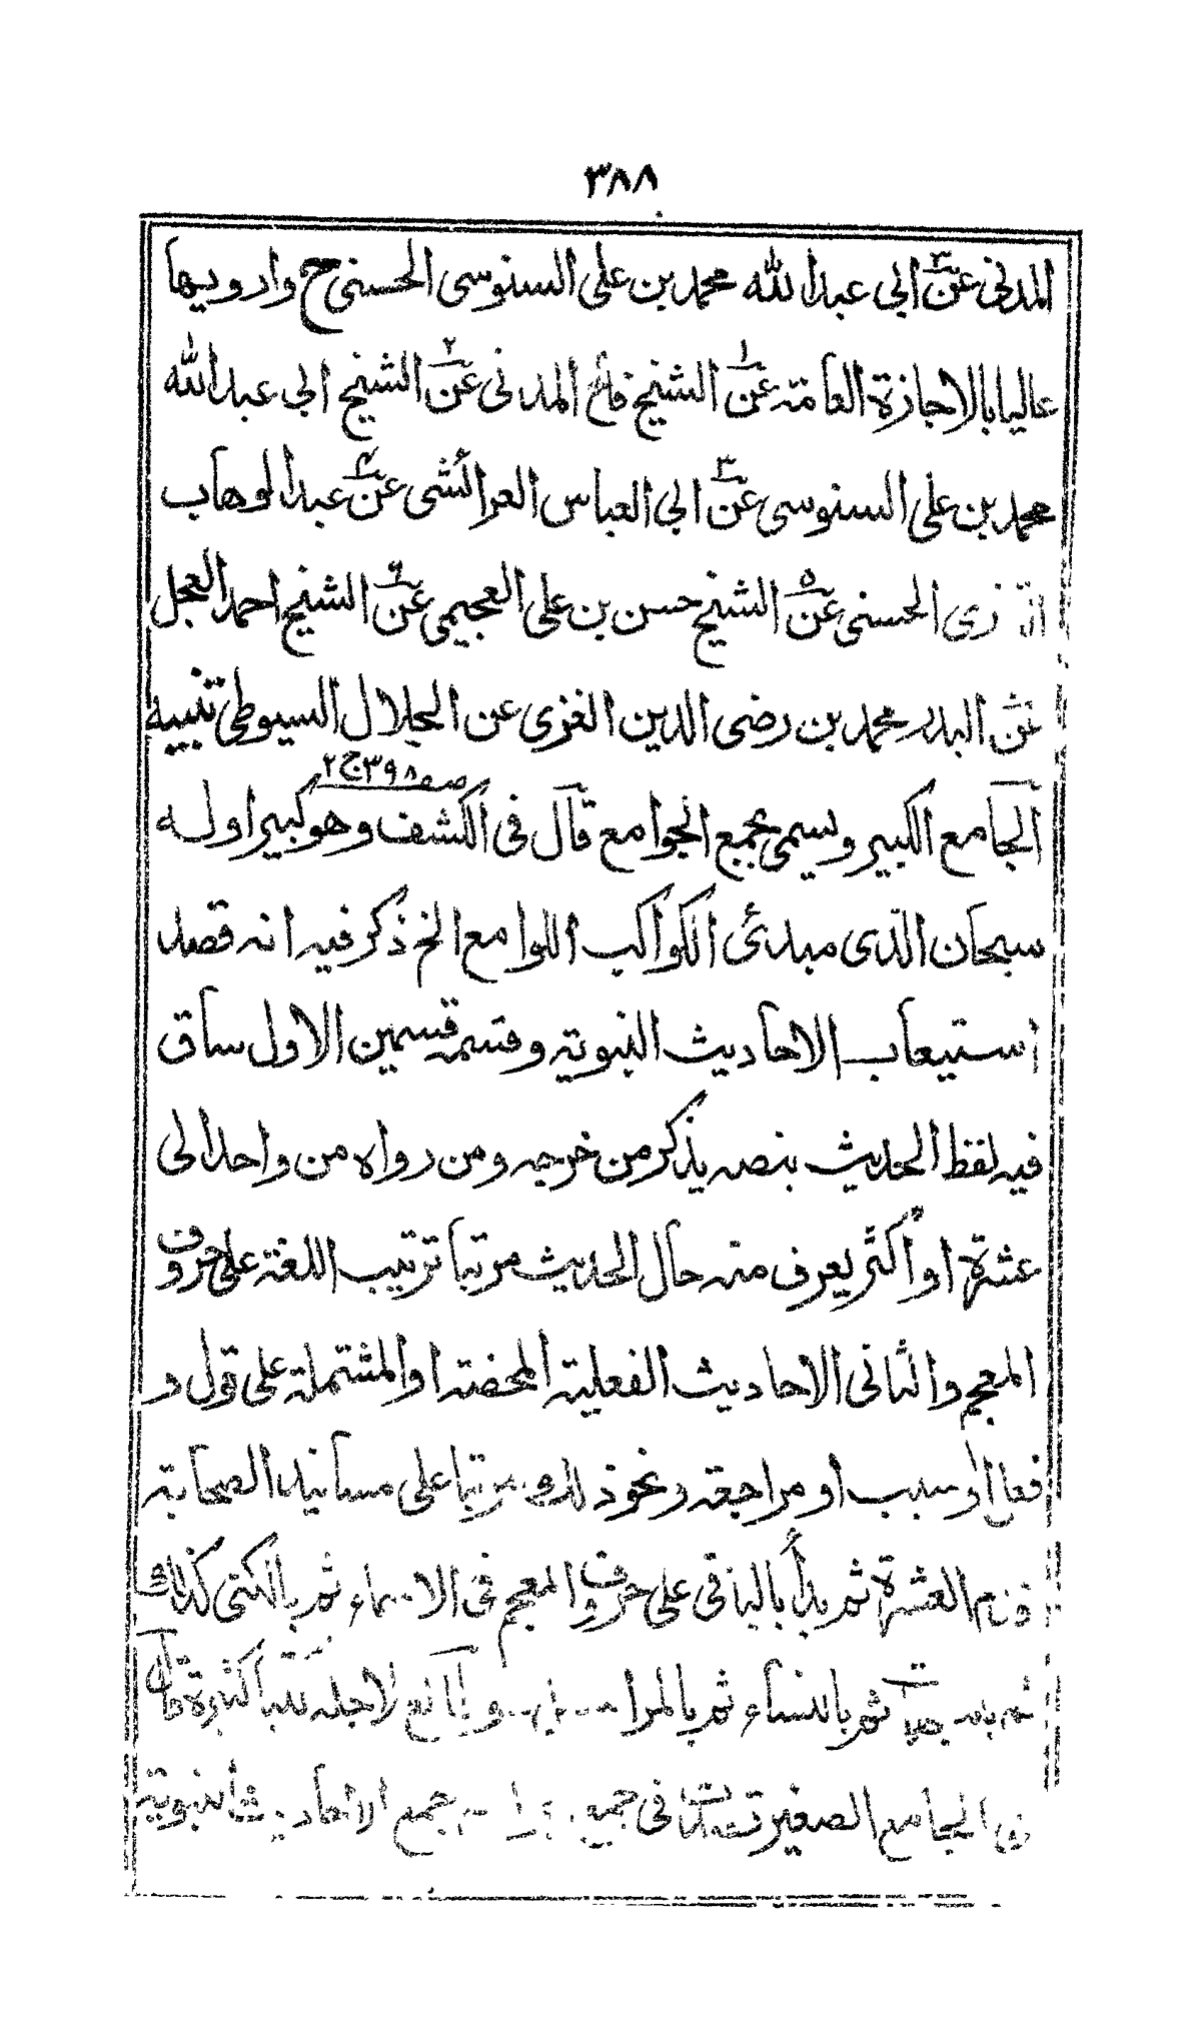 ٣٨٨
المدنى عن٣ ابى عبد الله محمد بن على السنوسى الحسنى ح وارويها
عاليا بالاجازة العامة عن١ الشيخ فالح المدنى عن٢ الشيخ ابى عبد الله
محمد بن على السنوسى عن٣ ابى العباس العرائشى عن٤ عبد الوهاب
التازى الحسنى عن٥ الشيخ حسن بن على العجيمى عن٦ الشيخ احمد العجل
عن البدر محمد بن رضى الدين الغزى عن الجلال السيوطى تنبيه
الجامع الكبير ويسمى بجمع الجوامع قال فى الكشف صـ٣٩٨ ج٢ وهو كبير اوله
سبحان الذى مبدئ الكواكب اللوامع الخ ذكر فيه انه قصد
استيعاب الاحاديث النبوية وقسمه قسمين الاول ساق
فيه لفظ الحديث بنصه يذكر من خرجه ومن رواه من واحد الى
عشرة او اكثر يعرف منه حال الحديث مرتبا ترتيب اللغة على حروف
المعجم والثانى الاحاديث الفعلية المحضة او المشتملة على قول و
فعل او سبب او مراجعة ونحو ذلك مرتبا على مسانيد الصحابة
قدم العشرة ثم بدأ بالباقى على حروف المعجم فى الاسماء ثم بالكنى كذلك
ثم بالمبهمات ثم بالنساء ثم بالمراسيل وطالع لاجله كتبا كثيرة قال
فى الجامع الصغير قصدت فى جمع الاحاديث النبوية